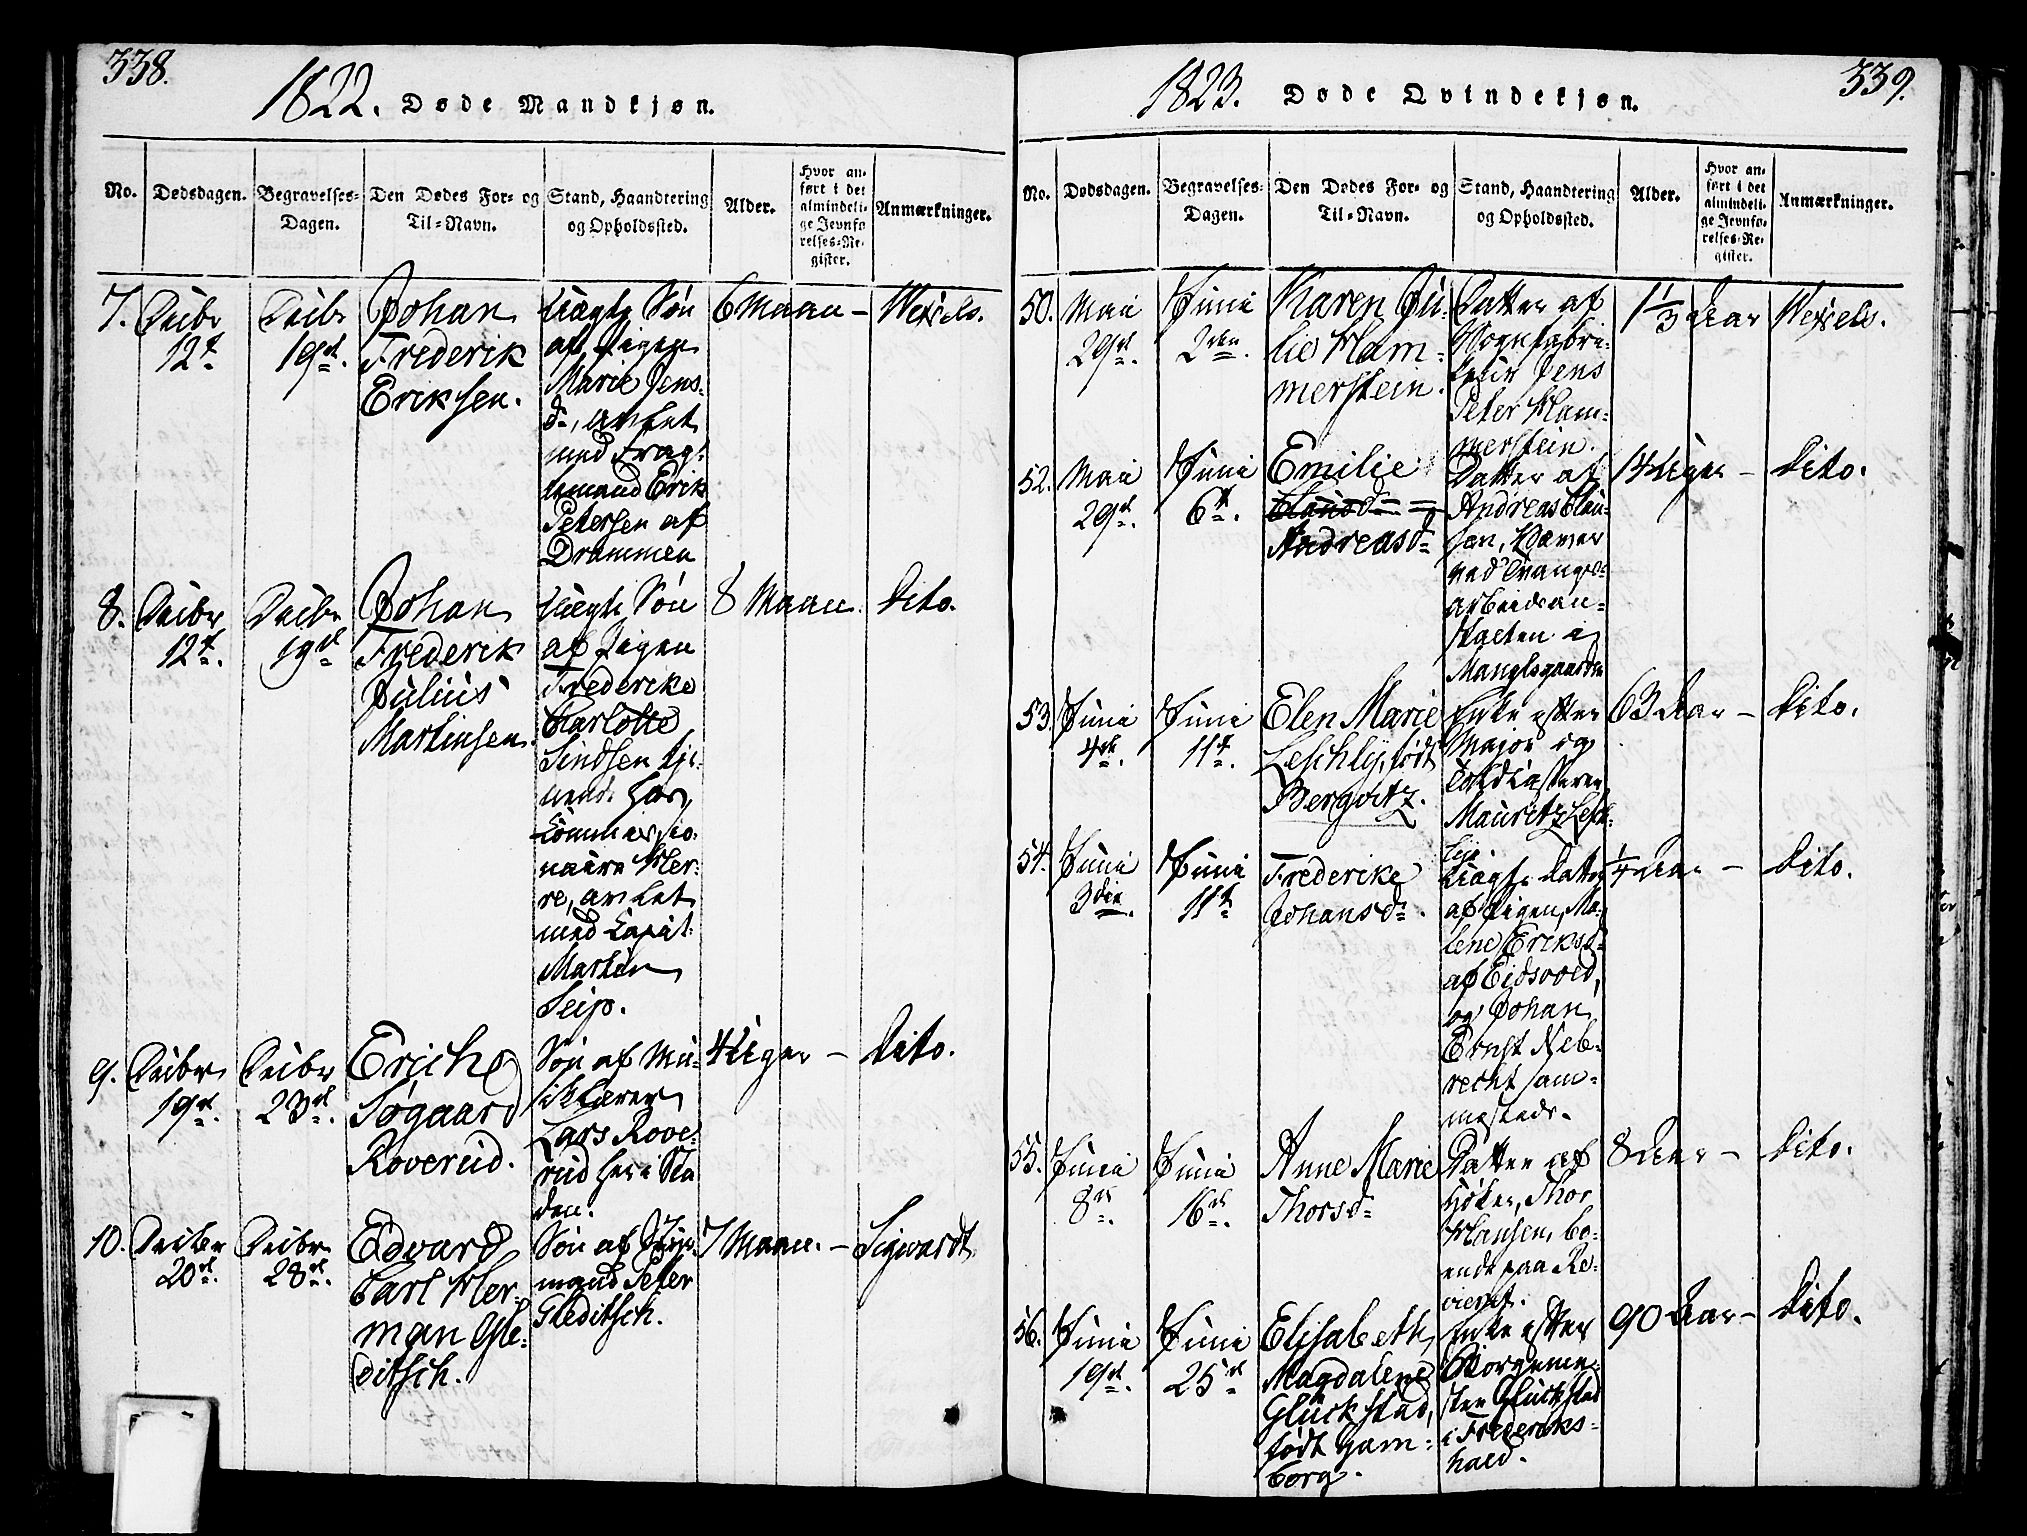 338.
1822. Døde Mandkjøn.
No. Dødsdagen. Begravelses-Dagen. Den Dødes For- og Til-Navn. Stand, Haandtering og Opholdssted. Alder. Hvor anført i det almindelige Jevnførelses-Register. Anmærkninger.
7. Decbr 12t. Decbr 19d. Johan
Frederik
Eriksen.
Uægte Søn
af Pigen
Marie Jens-
d=, avlet
med Fragt-
mand Erik
Petersen af
Drammen
6 Maan - Wexels.
8. Decbr 12t. Decbr 19d Johan
Frederik
Julius
Martinsen.
Uægte Søn
af Pigen
Frederike
Charlotte
Sindsen tje-
nende hos
Commissio-
naire Her-
re, avlet
med Capit.
Martin
Seip.
8 Maan. Dito.
9. Decbr 19d. Decbr 23d. Erich
Søgaard
Roverud.
Søn af Mu-
siklærer
Lars Rove-
rud her i Sta
den.
4 Uger - Dito.
10. Decbr 20d. Decbr 28d. Edvard
Carl Her-
man Gle-
ditsch.
Søn af
mand Peter
Gleditsch.
7 Maan. - Sigwardt
339.
1823. Døde Qvindekjøn.
No. Dødsdagen. Begravelses-Dagen. Den Dødes For- og Til-Navn. Stand, Haandtering og Opholdssted. Alder. Hvor anført i det almindelige Jevnførelses-Register. Anmærkninger.
50. Mai 29d. Juni 2den. Karen Ju-
lie Ham-
merstein.
Datter af
Vognfabri-
keur Jens
Peter Ham-
merstein.
1 1/3 Aar Wexels.
52. Mai 29d. Juni 6t. Emilie
Clausd=
Andreasd=
Datter af
Andreas Clau-
sen, Væver
ved Tvangs-
arbeidsan-
stalten i
Mangelsgaarden
14 Uger - Dito.
53. Juni 4de. Juni 11t. Elen Marie
Leschly, født
Bergvitz.
Enke efter
Major og
Toldkasserer
Mauritz Lesch-
lye
63 Aar - Dito.
54. Juni 3die. Juni 11t Frederike
Johansd=.
Uægte Datter
af Pigen, Ma-
lene Eriksd=
af Eidsvold,
og Johan
Ernst Neb-
recht sam-
mesteds.
1/4 Aar - Dito.
55. Juni 8d. Juni 16d. Anne Marie
Thorsd=
Datter af
Høker, Thor
Hansen, bo-
ende paa Re-
vieret.
8 Aar - Dito.
56. Juni 19d. Juni 25d Elisabeth
Magdalene
Glückstad,
født Ham-
borg.
Enke efter
Borgeme-
ster Glückstad
i Frederiks-
hald.
90 Aar - Dito.